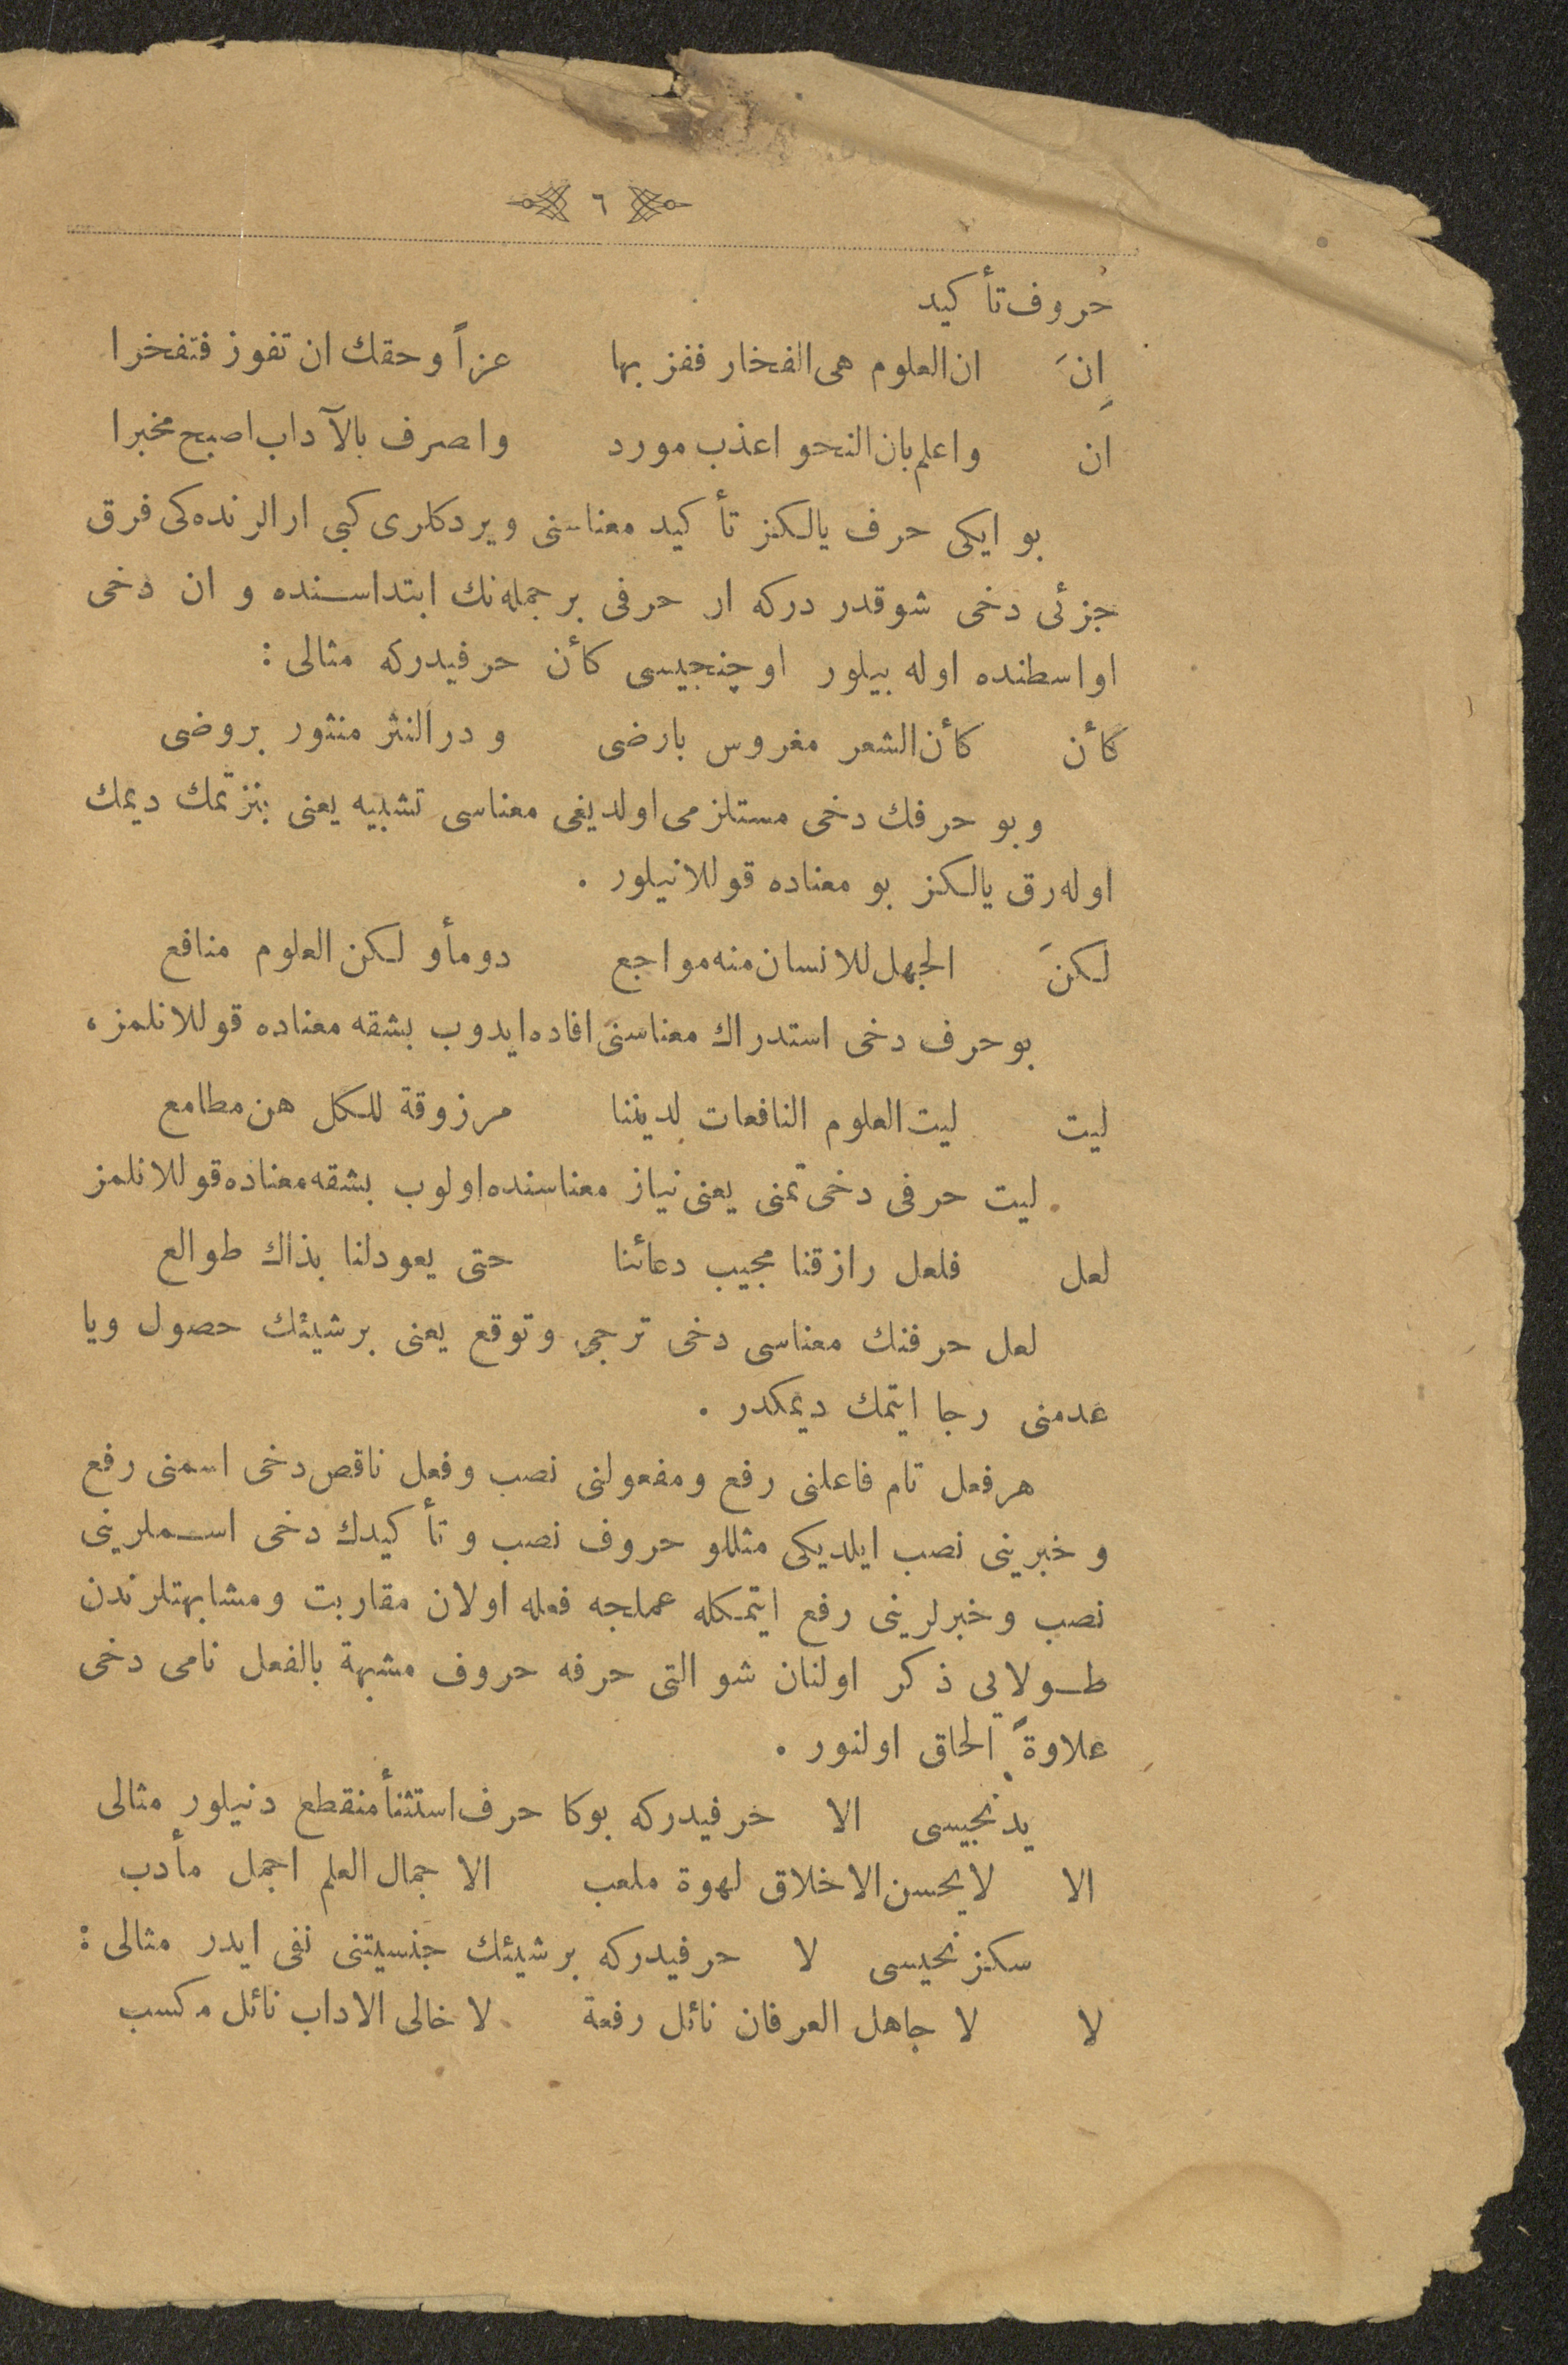 ٦
حروف تأكيد
اِنَ ان العلوم هى الفخار ففز بها عزاً وحقك ان تفوز فتفخرا
اَن واعلم بان النحو اعذب مورد واصرف بالآداب اصبح مخبرا
بو ايكى حرف يالكز تأكيد معناسنى ويردكلرى كبى ارالرنده كى فرق
جزئى دخى شوقدر دركه ار حرفى بر جمله نك ابتداسنده و ان دخى
اواسطنده اوله بيلور اوچنجيسى كأن حرفيدركه مثالى :
كأن كأن الشعر مغروس بارضى ودر النثر منثور بروضى
وبو حرفك دخى مستلزمى اولديغى معناسى تشبيه يعنى بنزتمك ديمك
اوله رق يالكز بو معناده قوللانيلور .
لكنَ الجهل للانسان منه مواجع دومأو لكن العلوم منافع
بو حرف دخى استدراك معناسنى افاده ايدوب بشقه معناده قوللانلمز ،
ليت ليت العلوم النافعات لديننا مرزوقة للكل هن مطامع
ليت حرفى دخى تمنى يعنى نياز معناسنده اولوب بشقه معناده قوللانلمز
لعل فلعل رازقنا مجيب دعائنا حتى يعودلنا بذاك طوالع
لعل حرفنك معناسى دخى ترجى وتوقع يعنى بر شيئك حصول ويا
عدمنى رجا ايتمك ديمكدر .
هر فعل تام فاعلنى رفع ومفعولنى نصب وفعل ناقص دخى اسمنى رفع
و خبرينى نصب ايلديكى مثللو حروف نصب و تأكيدك دخى اسملرينى
نصب و خبرلرينى رفع ايتمكله عملجه فعله اولان مقاربت ومشابهتلرندن
طولايى ذكر اولنان شو التى حرفه حروف مشبهة بالفعل نامى دخى
علاوةً الحاق اولنور .
يدنجيسى الا حرفيدركه بوكا حرف استثنأ منقطع دنيلور مثالى
الا لايحسن الاخلاق لهوة ملعب الا جمال العلم اجمل مأدب
سكزنحيسى لا حرفيدركه بر شيئك جنسيتنى نفى ايدر مثالى :
لا لا جاهل العرفان نائل رفعة لا خالى الاداب نائل مكسب